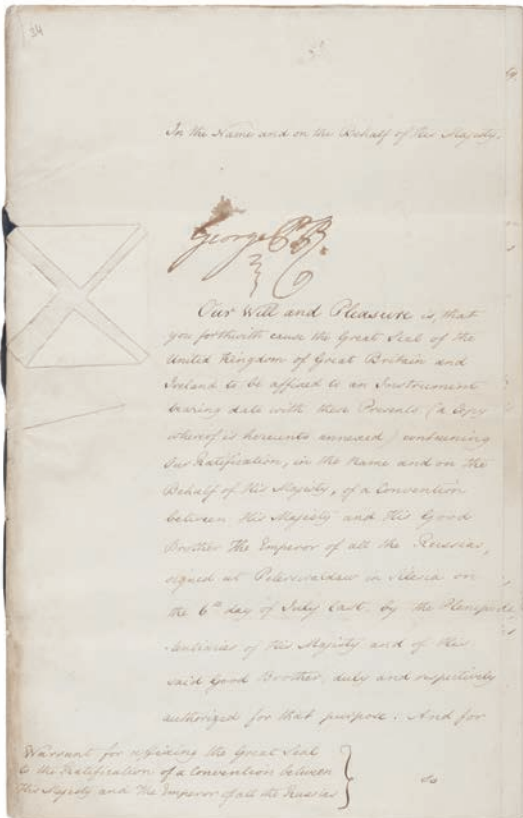 34
In the Name and on the Behalf of His Majesty.
George P R.
Our Will and Pleasure is, that
you forthwith cause the Great Seal of the
United Kingdom of Great Britain and
Ireland to be affixed to an Instrument
bearing date with these Presents (a Copy
whereof is hereunto annexed) containing
Our Ratification, in the Name and on the
Behalf of His Majesty, of a Convention
between His Majesty and His Good
Brother The Emperor of all the Russias,
signed at Peterswaldau in Silesia on
the 6th day of July last, by the Plenipo-
-tentiaries of His Majesty and of His
said Good Brother, duly and respectively
authorized for that purpose. And for
so
Warrant for affixing the Great Seal
to the Ratification of a Convention between
His Majesty and The Emperor of all the Russias